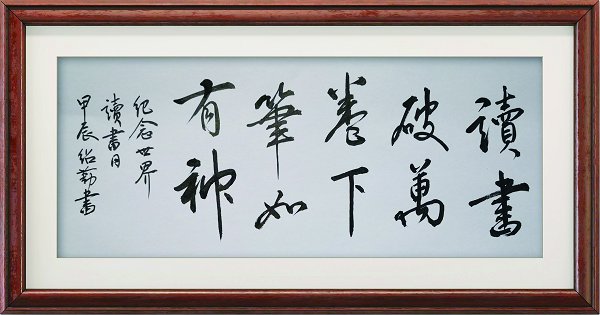 讀書
破萬
卷下
筆如
有神
紀念世界
讀書日
甲辰紹勤書